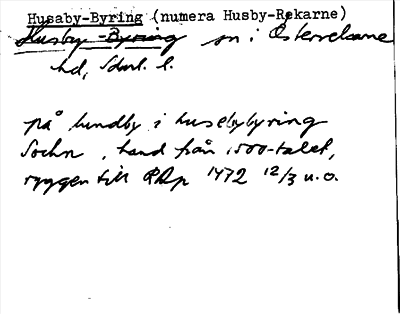 Husaby-Byring (numera Husby-Rekarne)
Husby-Byring sn i Österrekarne
hd, Sdml. l.
på lundby i husebybyring
Sochn, hand från 1500-talet,
ryggen till RAp 1472 12/3 u.o.